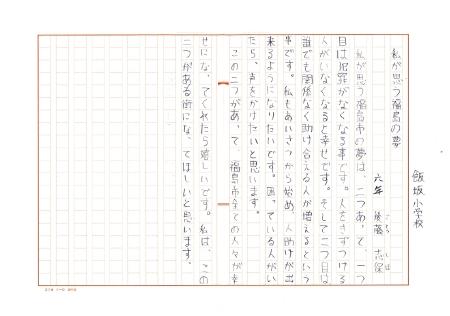 私が思う福島の夢
飯坂小学校
六年　後藤　志保
ごとう　しほ
私が思う福島市の夢は、二つあって、一つ
目は犯罪がなくなる事です。人をきずつける
人がいなくなると幸せです。そして二つ目は
誰でも関係なく助け合える人が増えるという
事です。私もあいさつから始め、人助けが出
来るようになりたいです。困っている人がい
たら、声をかけたいと思います。
この二つがあって、福島市全ての人々が幸
せになってくれたら嬉しいです。私は、この
二つがある街になってほしいと思います。